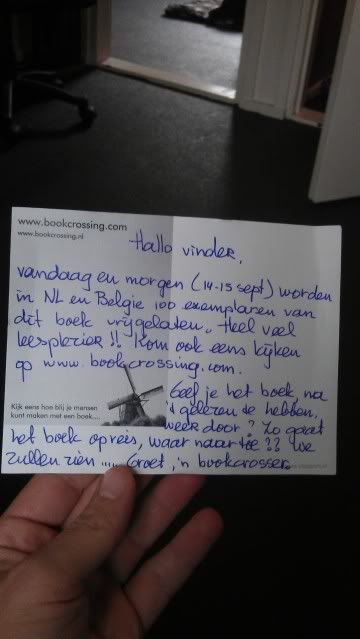 www.bookcrossing.com
www.bookcrossing.nl
Hallo vinder,
vandaag en morgen (14-15 sept) worden
in NL en Belgie 100 exemplaren van
dit boek vrijgelaten. Heel veel
leesplezier!! Kom ook eens kijken
op www.bookcrossing.com.
Kijk eens hoe blij je mensen
kunt maken met een boek....
Geef je het boek, na
't gelezen te hebben,
weer door? Zo gaat
het boek op reis, waar naar toe?? We
zullen zien..... Groet, 'n bookcrosser.